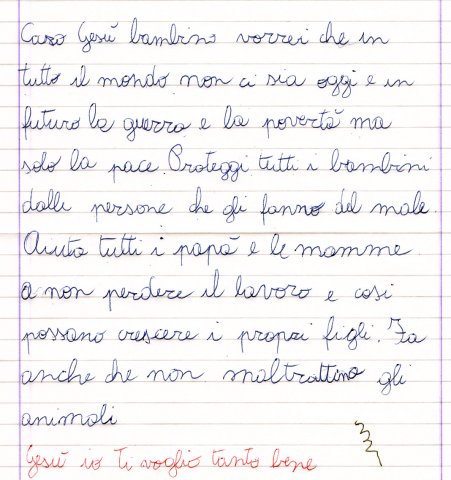 Caro Gesù bambino vorrei che in
tutto il mondo non ci sia oggi e in
futuro la guerra e la povertà ma
solo la pace. Proteggi tutti i bambini
dalle persone che gli fanno del male.
Aiuta tutti i papà e le mamme
a non perdere il lavoro e così
possano crescere i propri figli. Fa
anche che non maltrattino gli
animali
Gesù io ti voglio tanto bene